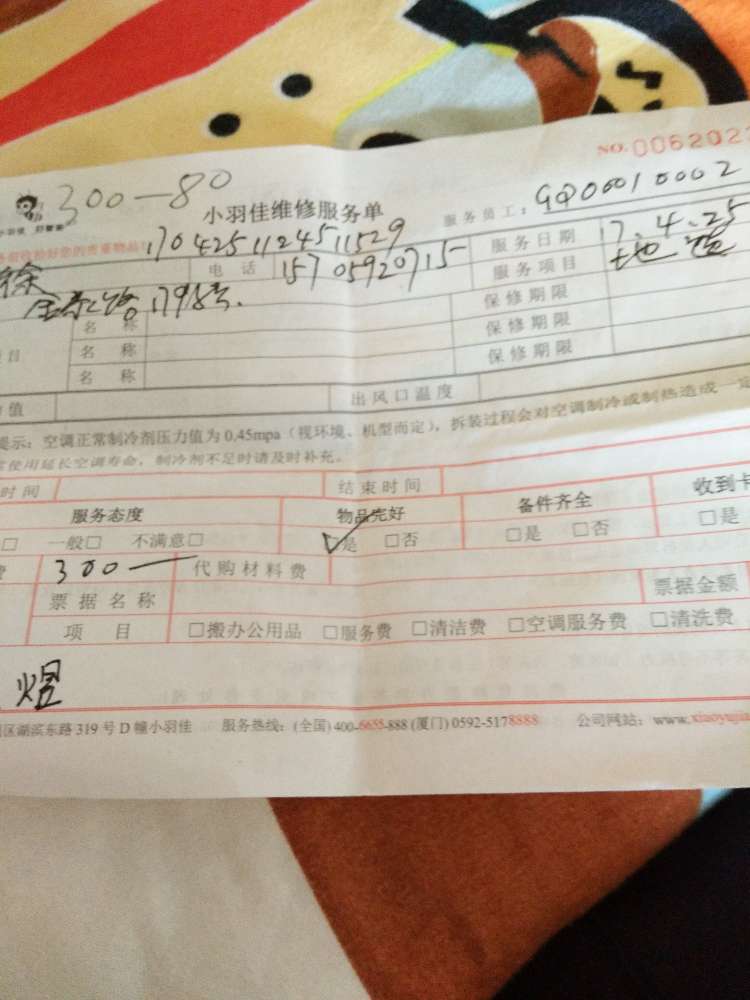 NO.006202
300—80
小羽佳维修服务单
服务员工：GP00010002
1704251124511529
徐 电话 15705920715 服务日期 17.4.25
1798号. 服务项目
名称 保修期限
项目 名称 保修期限
名称 保修期限
值 出风口温度
提示：空调正常制冷剂压力值为 0.45mpa（视环境、机型而定），拆装过程会对空调制冷或制热造成一定
使用延长空调寿命，制冷剂不足时请及时补充。
时间 结束时间
服务态度 物品完好 备件齐全 收到卡
□ 一般□ 不满意□ ☑是 □否 □是 □否 □是
费 300— 代购材料费
票据名称 票据金额
项目 □搬办公用品 □服务费 □清洁费 □空调服务费 □清洗费
煜
区湖滨东路 319 号 D 幢小羽佳 服务热线：(全国) 400-6655-888 (厦门) 0592-5178888 公司网站：www.xiaoyujia